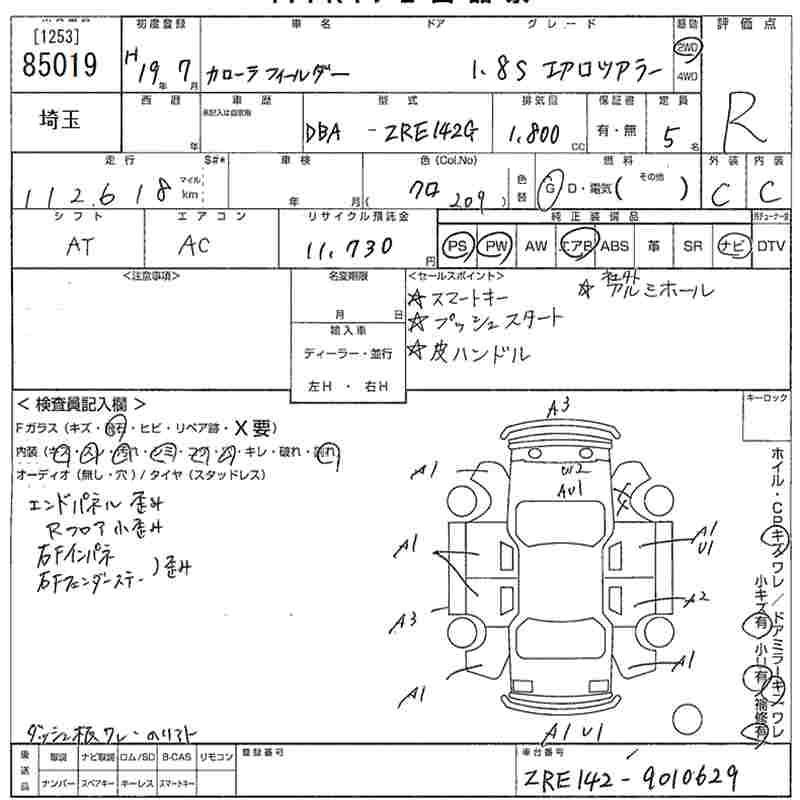 [1253]
85019
初度登録
H19年 7月
車名
カローラフィールダー
ドア
グレード
1.8S エアロツアラー
駆動
2WD
4WD
評価点
R
埼玉
西暦
年
車歴
未記入は自家用
型式
DBA - ZRE142G
排気量
1,800 CC
保証書
有・無
定員
5名
走行
112,618
マイル
km
S#*
車検
年 月
色(Col.No)
クロ (209)
色替
燃料
G D・電気( その他 )
外装
C
内装
C
シフト
AT
エアコン
AC
リサイクル預託金
11,730円
純正装備品
PS PW AW エアB ABS 革 SR ナビ DTV
<注意事項>
名変期限
月 日
輸入車
ディーラー・並行
左H・右H
<セールスポイント>
☆スマートキー
☆プッシュスタート
☆皮ハンドル
☆アルミホール
キーロック
<検査員記入欄>
Fガラス(キズ・飛石・ヒビ・リペア跡・X要)
内装(キズ・スレ・汚れ・シミ・コゲ・穴・キレ・破れ・剥れ)
オーディオ(無し・穴)/タイヤ(スタッドレス)
エンドパネル 歪み
Rフロア小歪み
右Fインパネ
右Fフェンダーステー)歪み
ダッシュ板ワレ
A3
W2
AU1
A1
A1
U1
A1
A3
A2
A1
A1
A1 U1
ホイル・CPキズワレ/ドアミラーキズワレ
小キズ有 小凹有 補修有
後送品
取説 ナビ取説 ロム/SD B-CAS リモコン
ナンバー スペアキー キーレス スマートキー
登録番号
車台番号
ZRE142-9010629